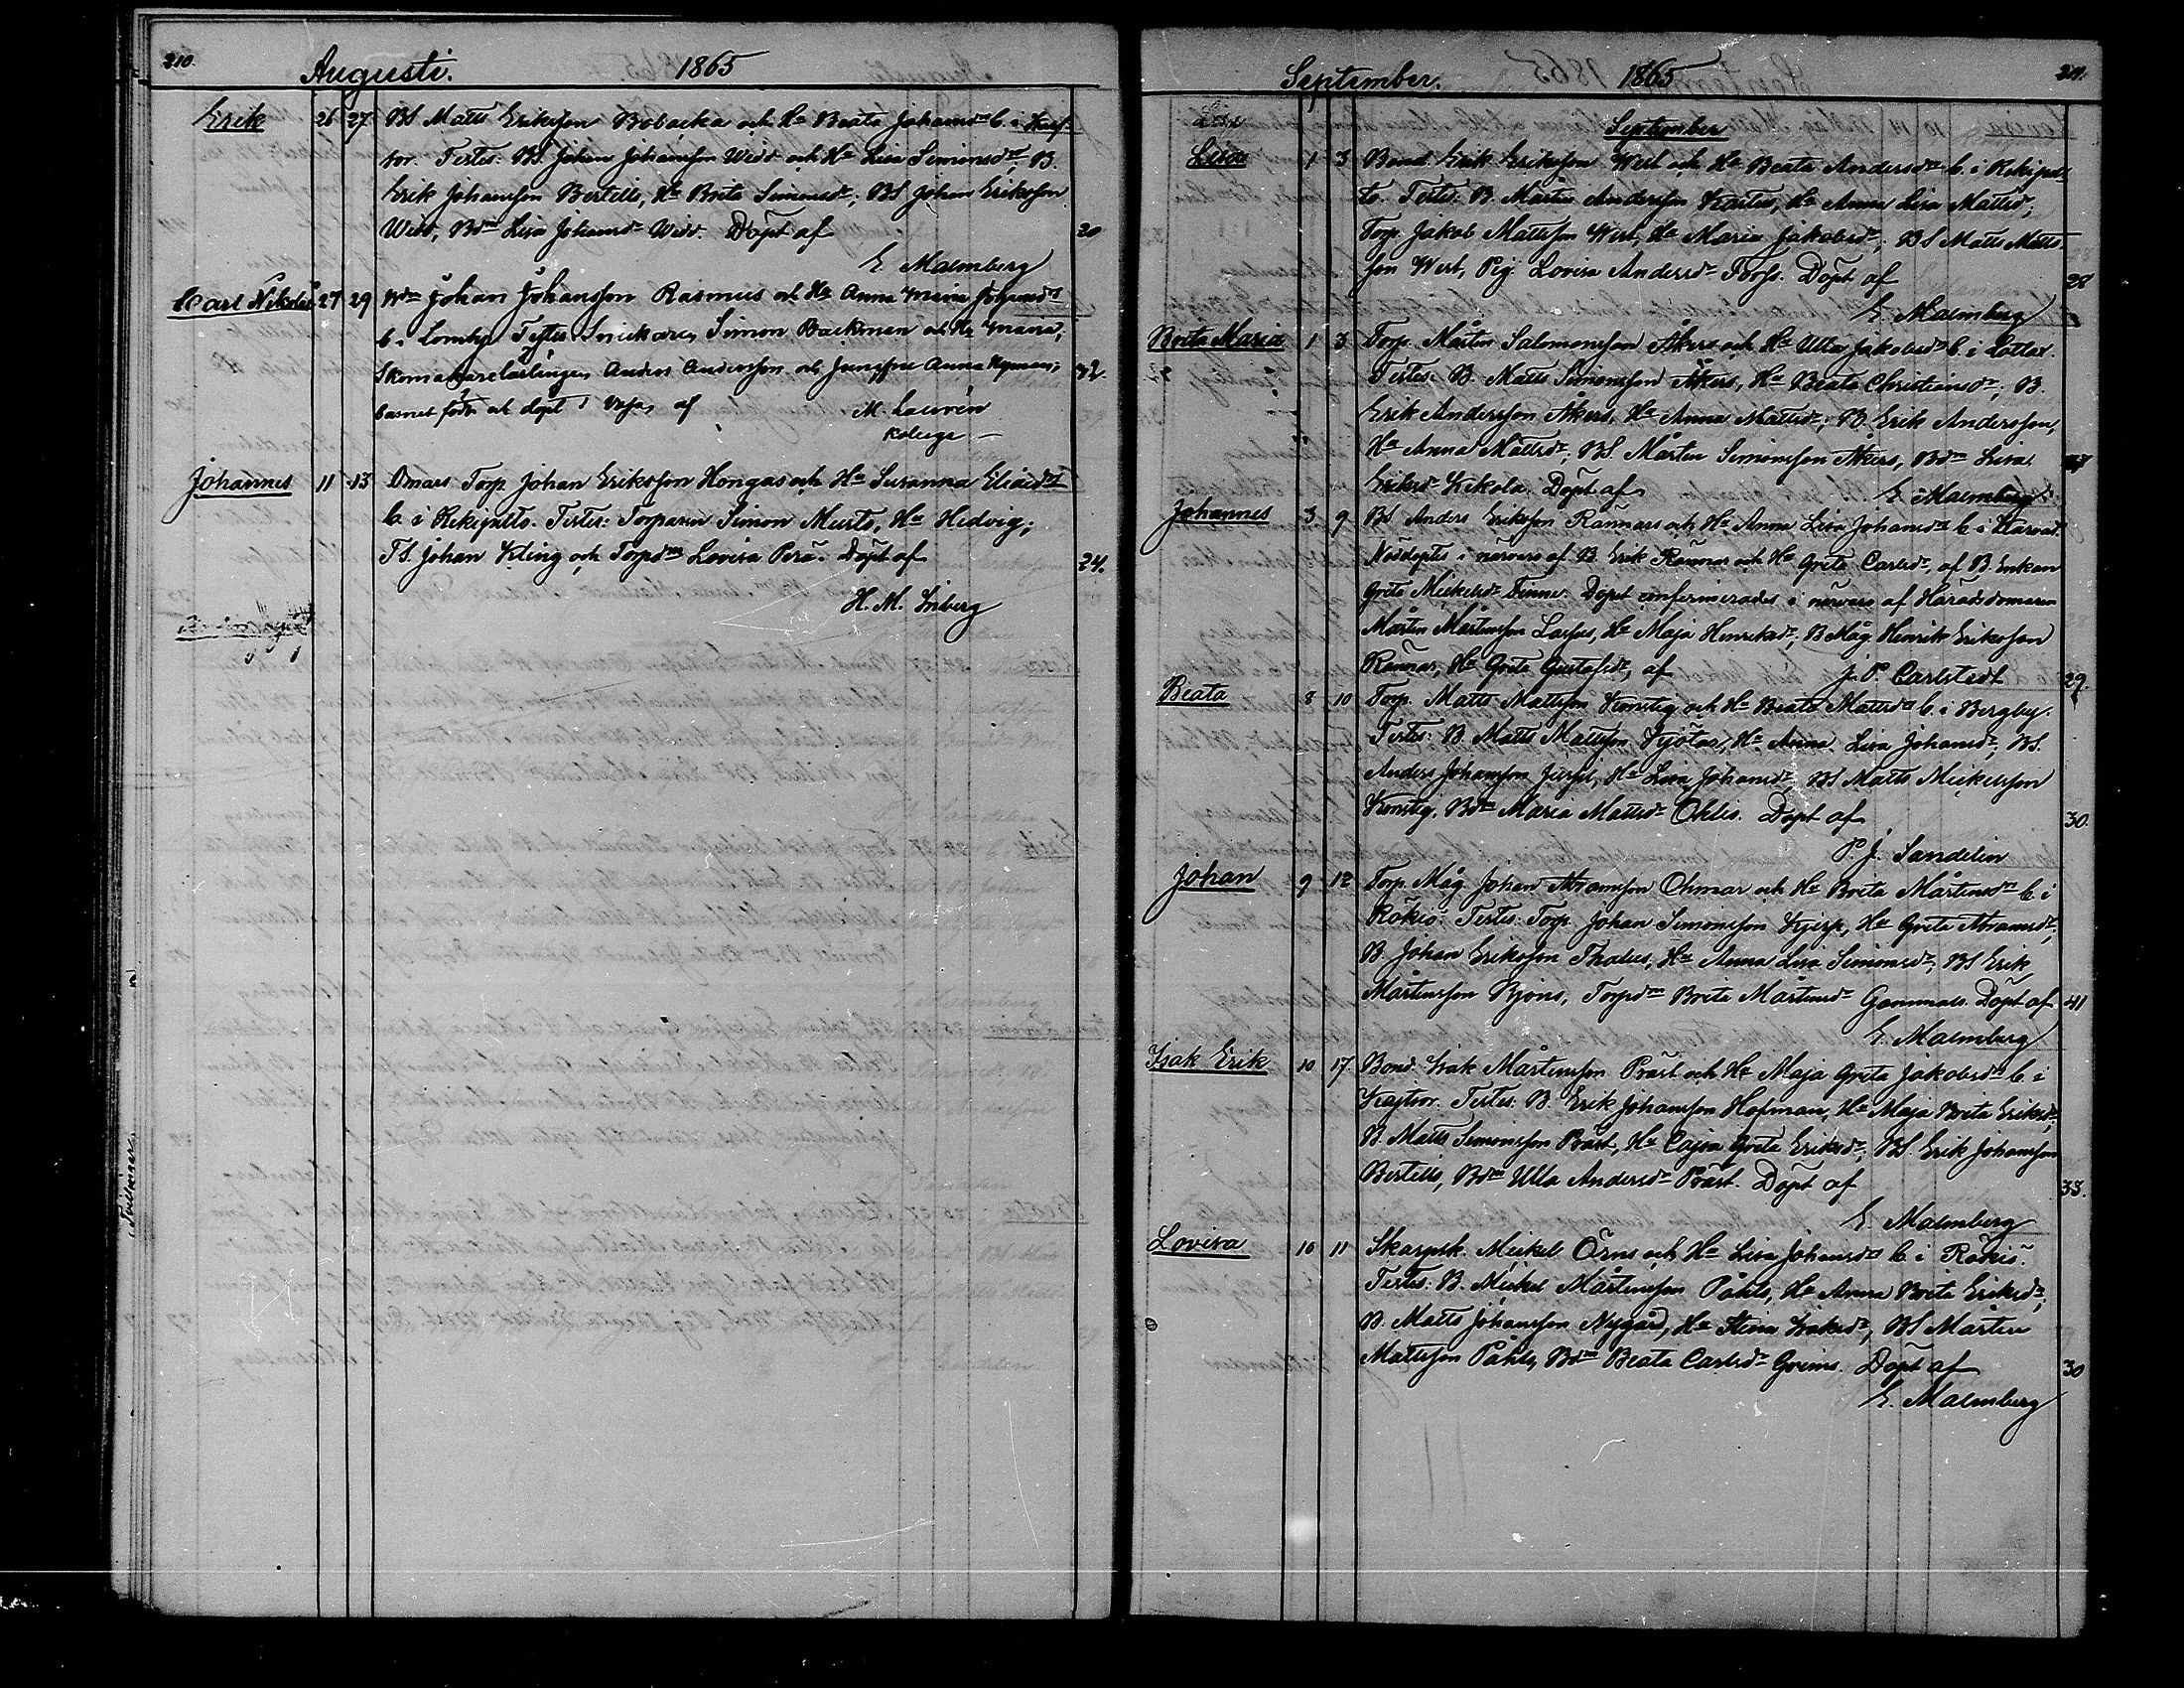 210.
Augusti. 1865
Erik 26 27 BS Matts Eriksson Bobacka och Hu Beata Johansdr b. i Karf-
sor. Testes: BS. Johan Johansson Widd och Hu Lisa Simonsdr, B.
Erik Johansson Bertills, Hu Brita Simonsdr; BS Johan Eriksson
Widd, Bdr Lisa Johansdr Widd. Döpt af 20
E. Malmberg
Carl Nikolai 27 29 Johan Johansson Rasmus och Hu Anna Maria
b. Testes Snickaren Simon Backman och Hu Maria;
Skomakarelärlingen Anders Andersson och Jungfru Anna 32
barnet födt och döpt i Vasa, af M. Laurén
Johannes 11 13 Torp. Johan Eriksson Hongas och Hu Susanna Eliædr
b. i Rekipelto. Testes: Torparen Simon Mursto, Hu Hedvig;
TS. Johan Kling och Torpdr Lovisa Perä. Döpt af 24.
H. M.
Tvillingar
211.
September. 1865
September
Lisa 1 3 Bond. Erik Eriksson West och Hu Beata Andersdr b. i Rekipel-
to. Testes: B. Mårten Andersson Hu Anna Lisa Mattsd;
Torp. Jakob Mattsson West, Hu Maria Jakobsdr; BS Matts Matts-
son West, Pig. Lovisa Andersdr Forss. Döpt af 28
E. Malmberg
Brita Maria 1 3 Torp. Mårten Salomonsson Åkers och Hu Ulla Jakobsdr b. i Lotlax.
Testes: B. Matts Simonsson Åkers, Hu Beata Christiansdr; B.
Erik Andersson Åkers, Hu Anna Mattsdr; B. Erik Andersson,
Hu Anna Mattsdr; BS. Mårten Simonsson Åkers, Bdr Lisa
Eriksdr Kekola. Döpt af E. Malmberg
Johannes 3 9 BS Anders Eriksson Rannars och Hu Anna Lisa Johansdr b. i Karvat.
Nöddöptes i närvaro af B. Erik Rannar och Hu Greta Carlsdr, af B. Enkan
Greta Mickelsdr Finne. Dopet confirmerades i närvaro af Häradsdomaren
Mårten Mårtensson Lassus, Hu Maja Henriksdr; B Måg. Henrik Eriksson
Rannar, Hu Greta Gustafsdr, af J. P. Carlstedt 29.
Beata 8 10 Torp. Matts Mattsson Konstig och Hu Beata Mattsdr b. i Bergby.
Testes: B. Matts Mattsson Hu Anna Lisa Johansdr; BS.
Anders Johansson Hu Lisa Johansdr; BS Matts Mickelsson
Konstig, Bdr Maria Mattsdr Ohlis. Döpt af 30.
P. J. Sandelin
Johan 9 12 Torp. Måg. Johan Abramsson Ohmar och Hu Brita Mårtensdr b. i
Rökiö. Testes: Torp. Johan Simonsson Hu Greta Abramsdr;
B. Johan Eriksson Thalus, Hu Anna Lisa Simonsdr; BS Erik
Mårtensson Bjöns, Torpdr Brita Mårtensdr Gammals. Döpt af 41
E. Malmberg
Isak Erik 10 17 Bond. Isak Mårtensson Präst och Hu Maja Greta Jakobsdr b. i
Kajtsor. Testes: B. Erik Johansson Hofman, Hu Maja Brita Eriksdr;
B. Matts Simonsson Präst, Hu Cajsa Greta Eriksdr; BS. Erik Johansson
Bertills, Bdr Ulla Andersdr Präst. Döpt af 33.
E. Malmberg
Lovisa 10 11 Skarpsk. Mickel Örns och Hu Lisa Johansdr b. i Rökiö.
Testes: B. Mickel Mårtensson Påhls, Hu Anna Brita Eriksdr;
B. Matts Johansson Nygård, Hu Stina Isaksdr; BS Mårten
Mattsson Påhls, Bdr Beata Carlsdr Greims. Döpt af 30
E. Malmberg